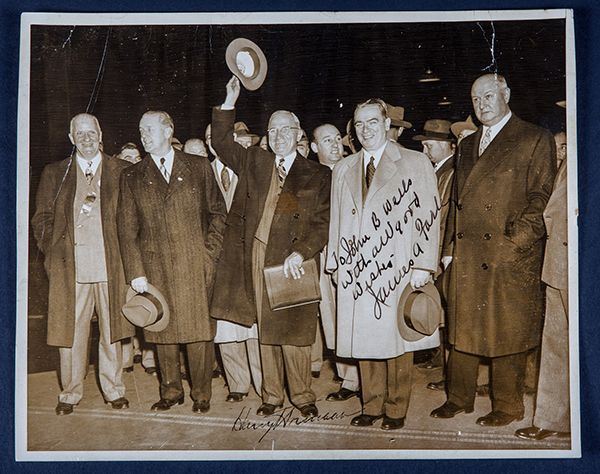 To John B Wells
with all good
wishes
James A Farley
Harry Truman